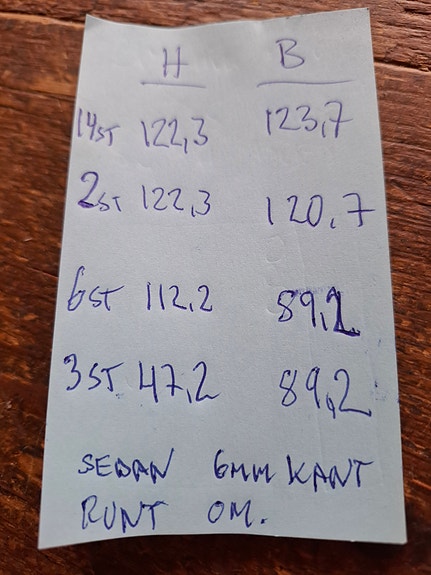 H B
14ST 122,3 123,7
2ST 122,3 120,7
6ST 112,2 89,2
3ST 47,2 89,2
SEDAN 6MM KANT
RUNT OM.